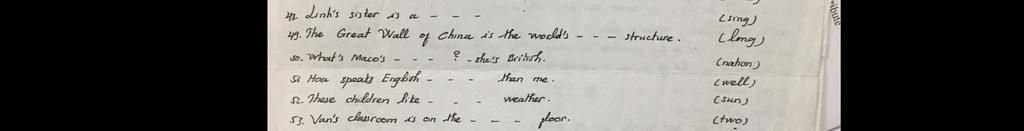 48. Linh's sister is a - - - (sing)
49. The Great Wall of China is the world's - - - structure. (long)
50. What's Maco's - - - ? - she's British. (nation)
51. Hoa speaks English - - - than me. (well)
52. These children like - - - weather. (sun)
53. Van's classroom is on the - - - floor. (two)